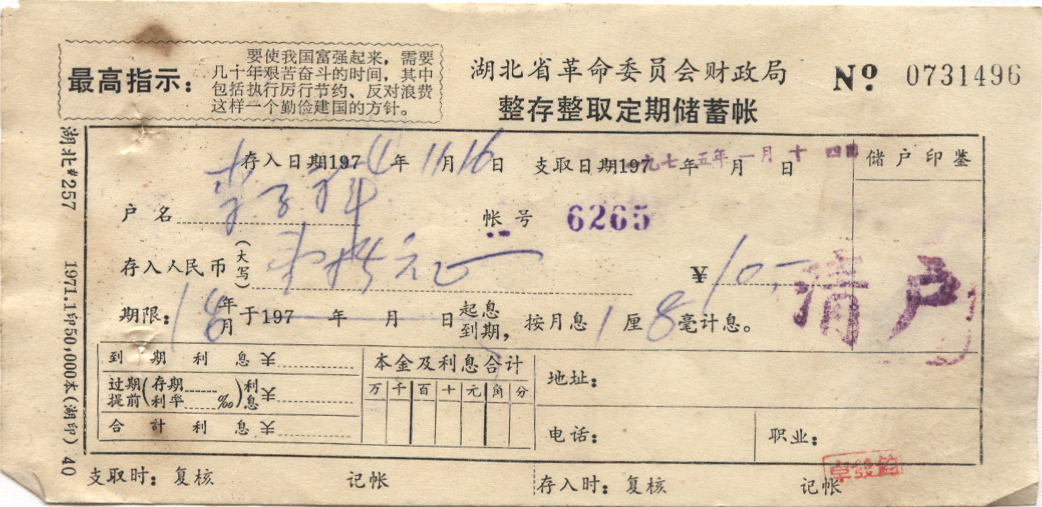 最高指示：
要使我国富强起来，需要
几十年艰苦奋斗的时间，其中
包括执行厉行节约、反对浪费
这样一个勤俭建国的方针。
湖北省革命委员会财政局
整存整取定期储蓄帐
No. 0731496
湖北#257 1971.1印50,000本(湖印) 40
存入日期1974年11月16日 支取日期197年月日
九七五年一月十四
储户印鉴
户名
帐号 6265
存入人民币(大写) 元正 ¥10.-
清户
期限：1年于197 年 月 日起息到期，按月息1厘8毫计息。
到期利息¥
过期提前(存期 利率 ‰)利息¥
合计利息¥
本金及利息合计
万千百十元角分
地址：
电话：
职业：
支取时：复核 记帐 存入时：复核 记帐